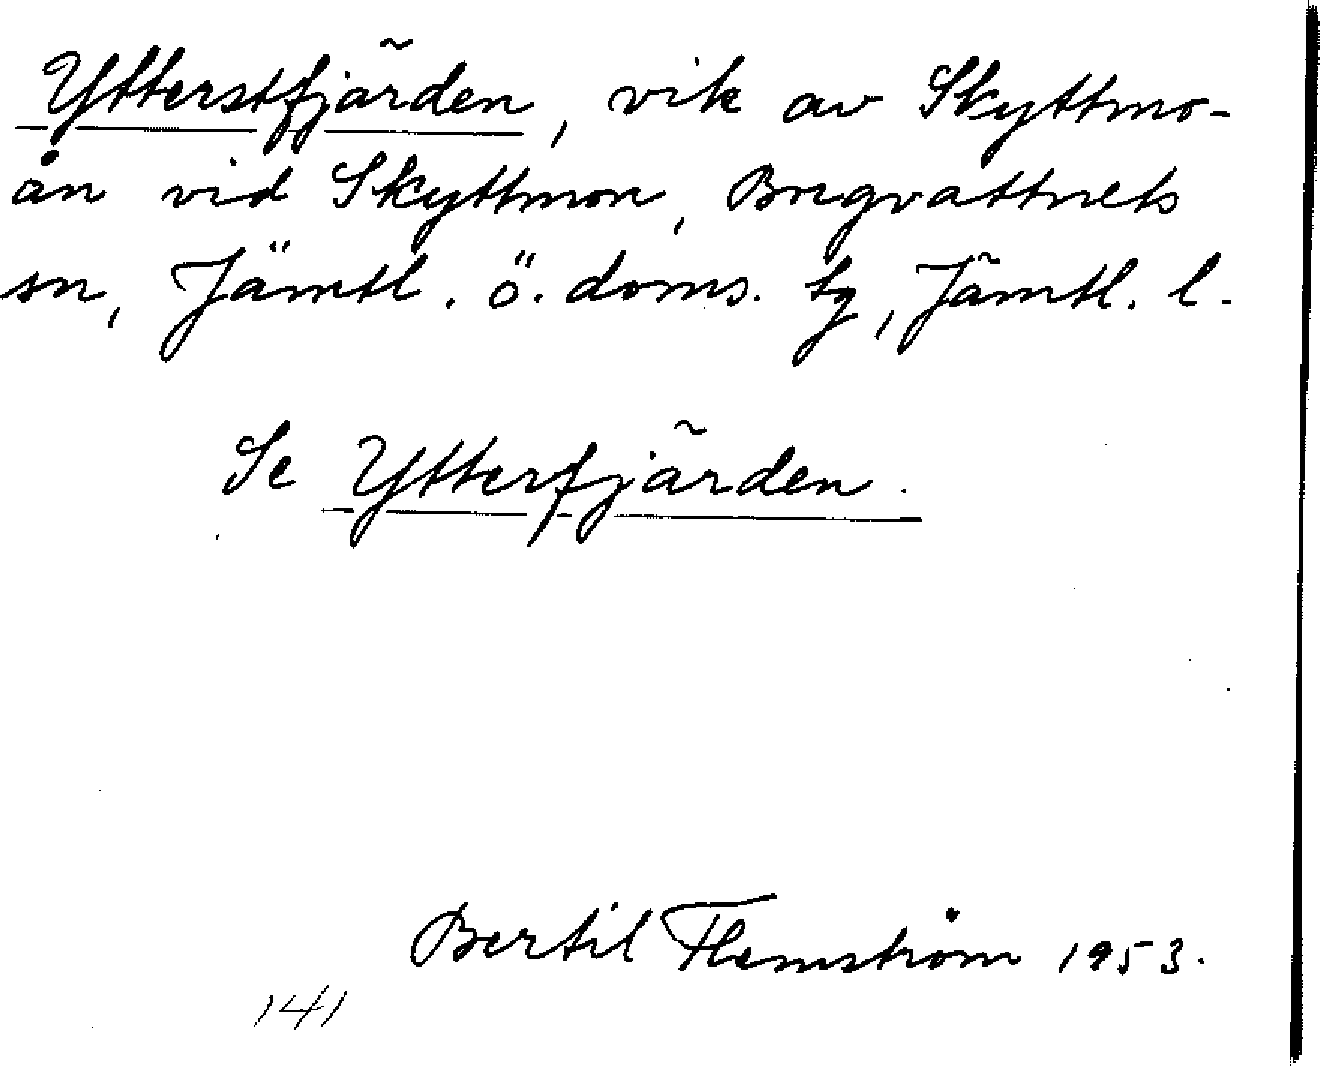 Ytterstfjärden, vik av Skyttmo-
ån vid Skyttmon, Borgvattnets
sn, Jämtl. ö. doms. tg, Jämtl. l.
Se Ytterfjärden.
Bertil Flemström 1953.
141